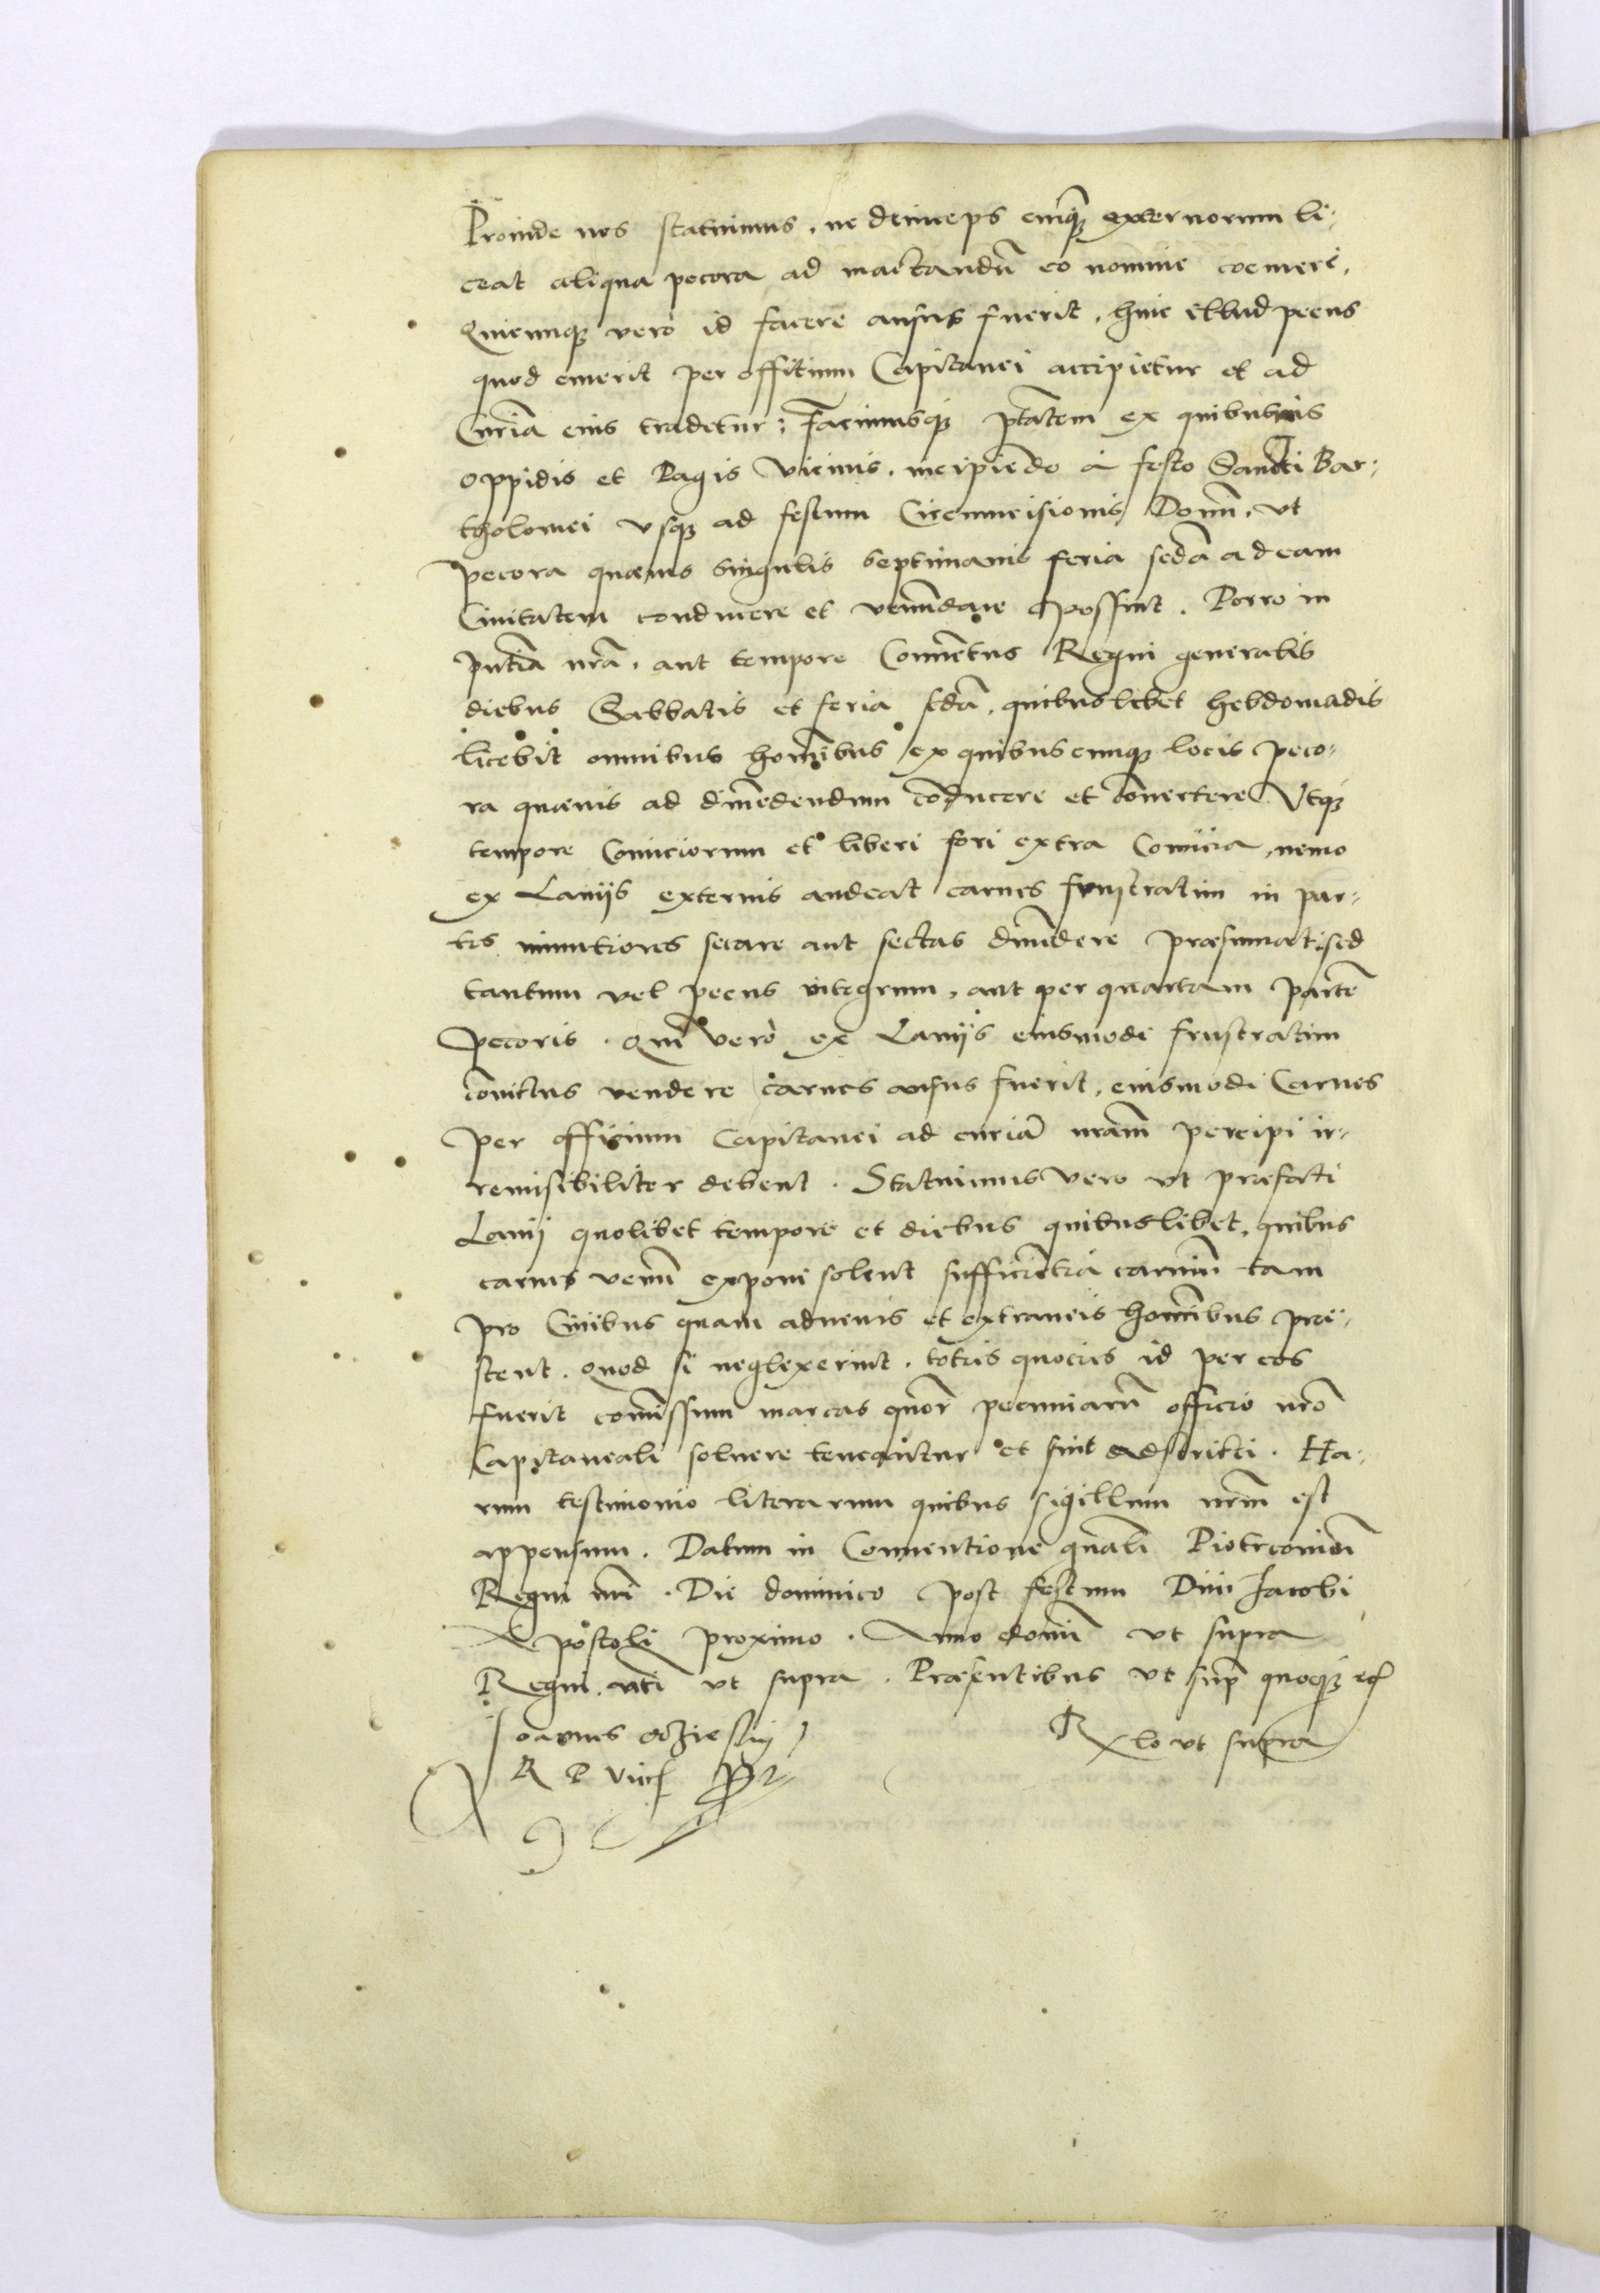 Proinde nos statuimus, ne deinceps cuiqȝ externorum li-
ceat aliqua pecora ad mactandū eo nomine coemere,
Quicunqȝ vero id facere ausus fuerit, huic illud pecus
quod emerit per offitium Capitanei accipietur et ad
Curiā eius tradetur: Facimusqȝ ptātem ex quibusuis
oppidis et Pagis vicinis, incipiēdo à festo Sancti Bar-
tholomei vsqȝ ad festum Circumcisionis Domī, vt
pecora quæuis singulis septimanis feria sedā ad eam
Ciuitatem conducere et venūdare possint. Porro in
pntiā nrā, aut tempore Conuētus Regni generalis
diebus Sabbatis et feria sedā, quibuslibet hebdomadis
licebit omnibus homībus ex quibuscunqȝ locis peco-
ra quæuis ad diuēdendum cōducere et cōuertere. Vtqȝ
tempore Comiciorum et liberi fori extra Comicia, nemo
ex Lanijs externis audeat carnes frustratim in par-
tes minutiores secare aut sectas diuēdere præsumat: sed
tantum vel pecus integrum, aut per quartam partē
pecoris. Qui vero ex Lanijs eiusmodi frustratim
vendere carnes ausus fuerit, eiusmodi Carnes
per officium Capitanei ad curiā nrām percipi ir-
remisibiliter debent. Statuimus vero vt præfati
Lanij quolibet tempore et diebus quibuslibet, quibus
carnes venū exponi solent sufficiētiā carniū tam
pro Ciuibus quam aduenis et extraneis homībus præ-
stent. Quod si neglexerint, toties quocies id per eos
fuerit comissum marcas quor pecuniarū officio nrō
Capitaneali soluere teneantur et sint adstricti. Ha-
rum testimonio literarum quibus sigillum nrm̄ est
appensum. Datum in Conuentione gnāli Piotrconieñ
Regni nrī. Die dominico post festum Diui Jacobi
Apostoli proximo. Anno domī vt supra
Regni nrī vt supra. Præsentibus vt sup̄ quoqȝ
Joannes Oczieskij
R P Vice
Rlo vt supra